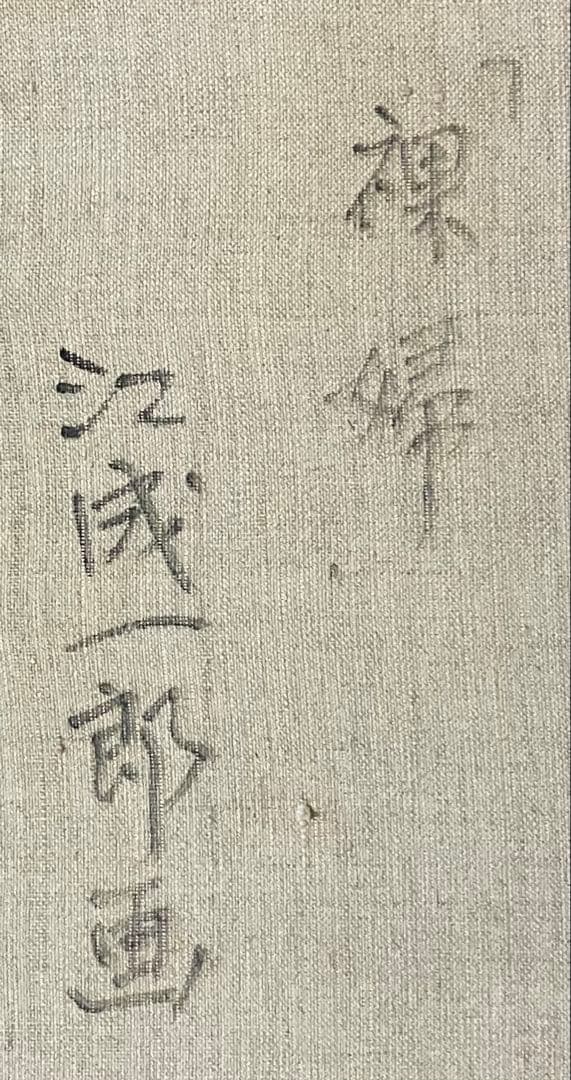 「裸婦
江成一郎画